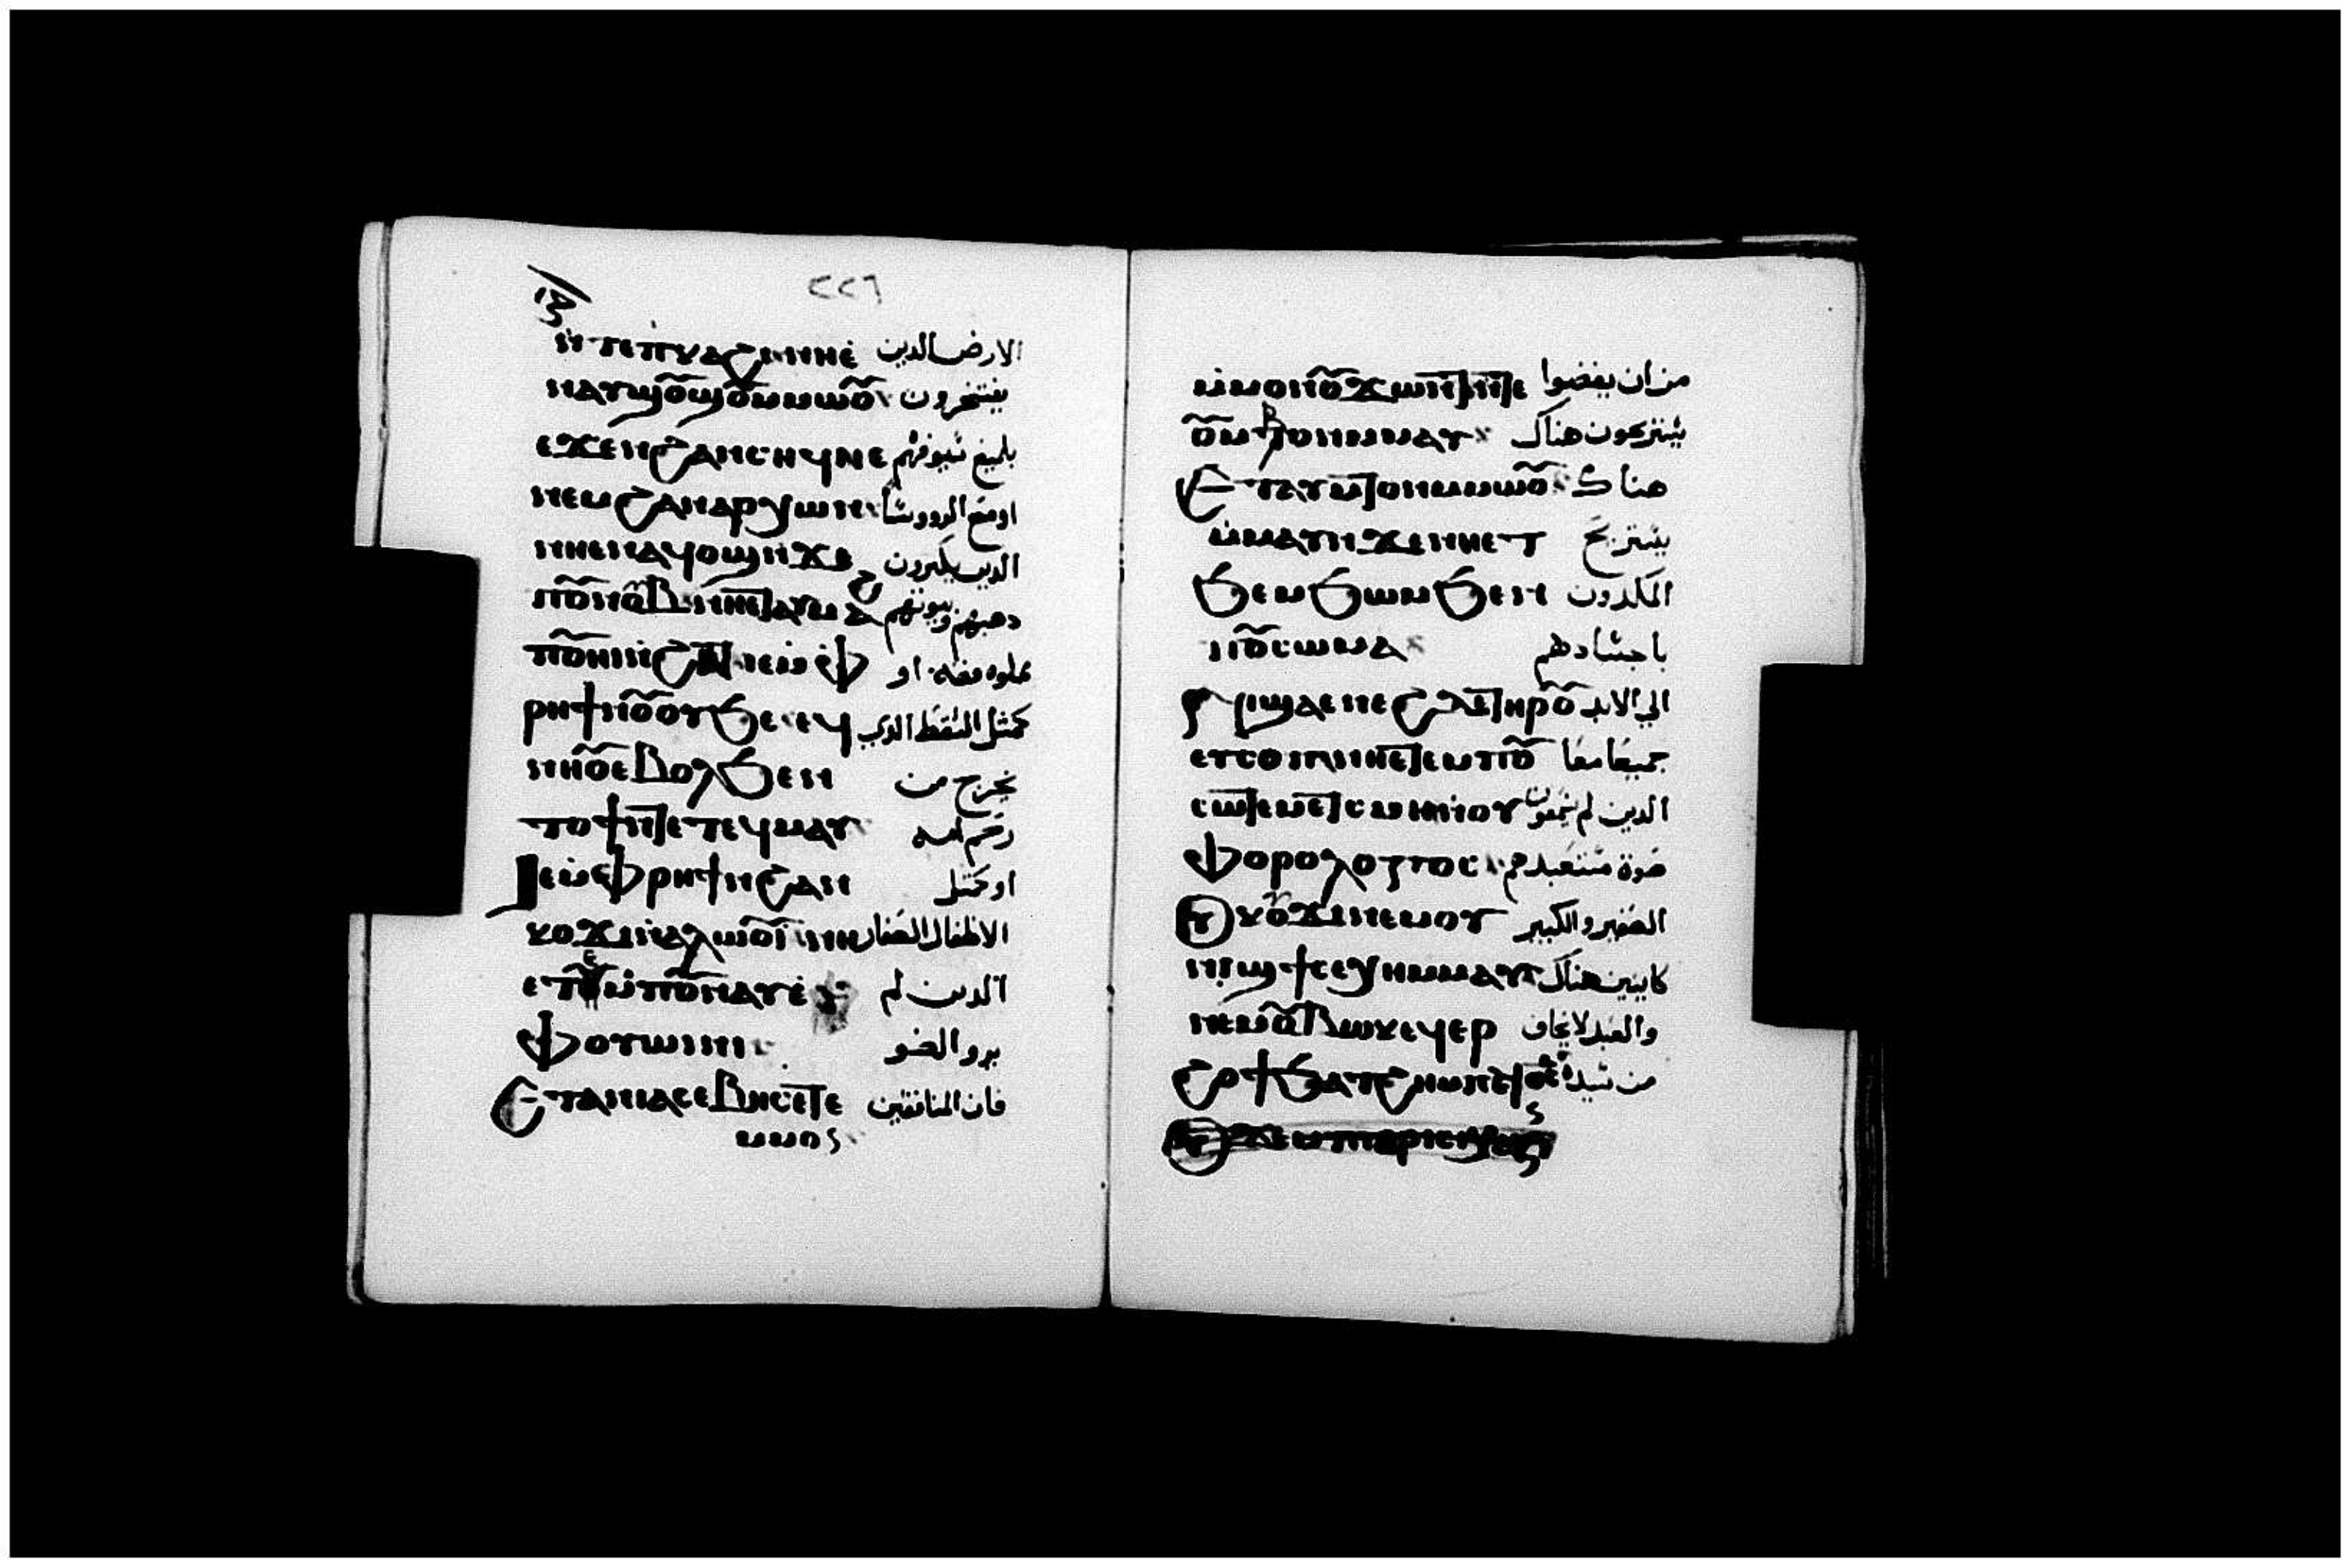 ٢٢٦
ⲛ̀ⲧⲉⲡⲕⲁϩⲓⲛⲏⲉ̀ الارض الدين
ⲛⲁⲩϣⲟ̅ϣⲟ̅ⲙⲙⲱⲟ̅ يفتخرون
ⲉϫⲉⲛϩⲁⲛⲥⲏϥⲛⲉ سيوفهم
ⲛⲉⲙϩⲁⲛⲁⲣⲭⲱⲛ اومع الرووسا
ⲛⲏⲉⲛⲁϥⲟϣⲛϫⲉ الدين يكترون
ⲡⲟ̅ⲛⲟ̅ⲃ دهبهم وبيوتهم
ⲡⲟ̅ⲏⲓⲛϩⲁⲧ ⲓⲉⲙ̀ⲫ̀ مملوه فضه او
ⲣⲏϯⲛⲟ̅ⲟⲩϧⲉ ⲉϥ كمثل السقط الدي
ⲛⲏⲟ̅ⲉⲃⲟⲗϧⲉⲛ يخرج من
ⲧⲟϯⲛⲧⲉⲧⲉϥⲙⲁⲩ رحم امه
ⲓⲉⲙ̀ⲫⲣⲏϯⲛϩⲁⲛ او كمثل
ⲕⲟϫⲓⲛⲁⲗⲱⲟ̅ⲓ ⲛⲏ الاطفال الصغار
ⲉⲧⲉⲙ̀ⲡⲟ̅ⲛⲁⲩⲉ̀ الدين لم
ⲫⲟⲩⲱⲓⲛⲓ يرو الضو
ⲉⲧⲁⲛⲓⲁⲥⲉⲃⲏⲥⲧⲉ فان المنافقين
ⲙⲙⲟⲥ
ⲙ̀ⲙⲟⲛⲟ̅ϫⲱⲛⲧⲛⲧⲉ من ان يغضبوا
ⲟ̅ⲙⲧⲟⲛⲙⲙⲁⲩ يستريحون هناك
ⲉⲧⲁⲩⲙⲧⲟⲛⲙⲙⲱⲟ̅ هناك
ⲙ̀ⲙⲁⲩⲛϫⲉⲛⲏⲉⲧ يستريح
ϧⲉⲙϧⲱⲙϧⲉⲛ المكدون
ⲡⲟ̅ⲥⲱⲙⲁ باجسادهم
ϣⲁⲉⲛⲉϩ ⲧⲏⲣⲟ̅ الي الابد
ⲉⲩⲥⲟⲡ ⲛⲏⲉⲧⲉⲙⲡⲟ̅ جميعا معا
ⲥⲱⲧⲉⲙⲉⲧⲥⲙⲏⲛⲟⲩ الدين لم يسمعون
ⲫⲟⲣⲟⲗⲟⲅⲧⲟⲥ صوة مستعبدهم
ⲕⲟ̅ϫⲓⲛⲉⲙⲟⲩ الصغير والكبير
ⲛⲓϣϯⲥⲉⲭⲏⲙⲙⲁⲩ كاينين هناك
ⲛⲉⲙⲟ̅ⲃⲱⲕⲉϥⲉⲣ والعبد لا يخاف
ϩⲟϯϧⲁⲧϩⲏⲙⲡⲉϥⲟ̅ⲥ من سيده